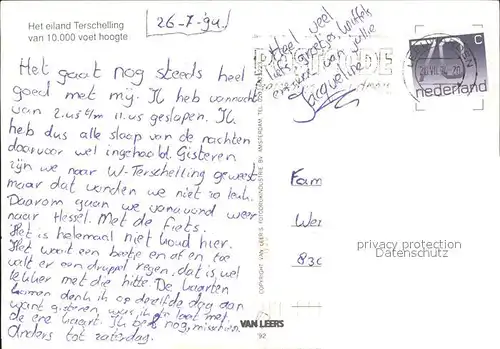 Het eiland Terschelling
van 10.000 voet hoogte
26-7-94.
Het gaat nog steeds heel
goed met mij. Ik heb vannacht
van 2.us t/m 11.us geslapen. Ik
heb dus alle slaap van de nachten
daarvoor wel ingehaald. Gisteren
zijn we naar W-Terschelling geweest
maar dat vonden we niet zo leuk.
Daarom gaan we vanavond weer
naar Hessel. Met de fiets.
Het is helemaal niet koud hier.
Het waait een beetje en af en toe
valt er een druppel regen, dat is wel
lekker met die hitte. De kaarten
komen denk ik op dezelfde dag aan
want gisteren was ik te laat met
de ene kaart. Ik bel nog, misschien.
Anders tot zaterdag.
Heel veel
kusjes, knuffels
van jullie
Jacqueline
COPYRIGHT VAN LEER'S FOTODRUKINDUSTRIE BV AMSTERDAM
VAN LEERS
'92
70 C
nederland
Fam
Wer
830
privacy protection
Datenschutz